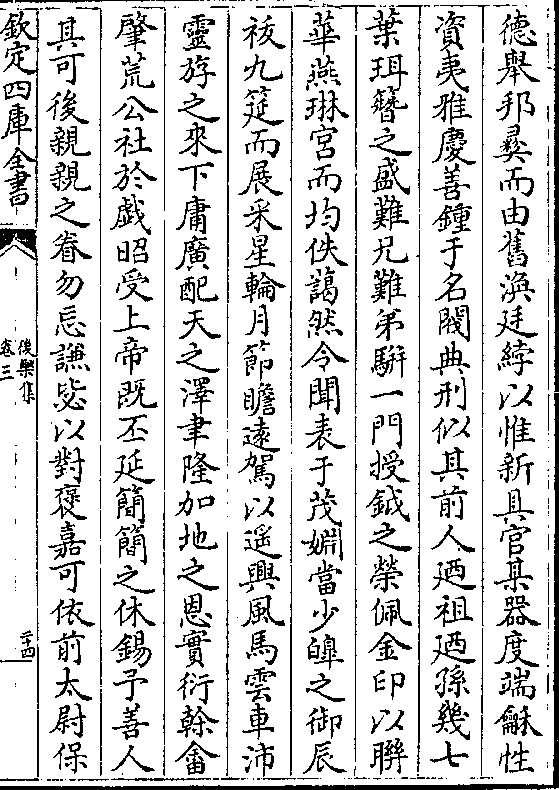 德舉邦彞而由舊渙廷綍以惟新具官某器度端龢性
資夷雅慶善鍾于名閥典刑似其前人廼祖廼孫幾七
葉珥簪之盛難兄難弟駢一門授鉞之榮佩金印以聯
華燕琳宮而均佚藹然令聞表于茂姻當少皥之御辰
袚九筵而展采星輪月節瞻遠駕以遥興風馬雲車沛
靈斿之來下庸廣配天之澤聿隆加地之恩實衍榦畬
肇荒公社於戲昭受上帝既丕延簡簡之休錫予善人
其可後親親之眷勿忘謙毖以對褒嘉可依前太尉保
欽定四庫全書
後樂集
卷三
二十四